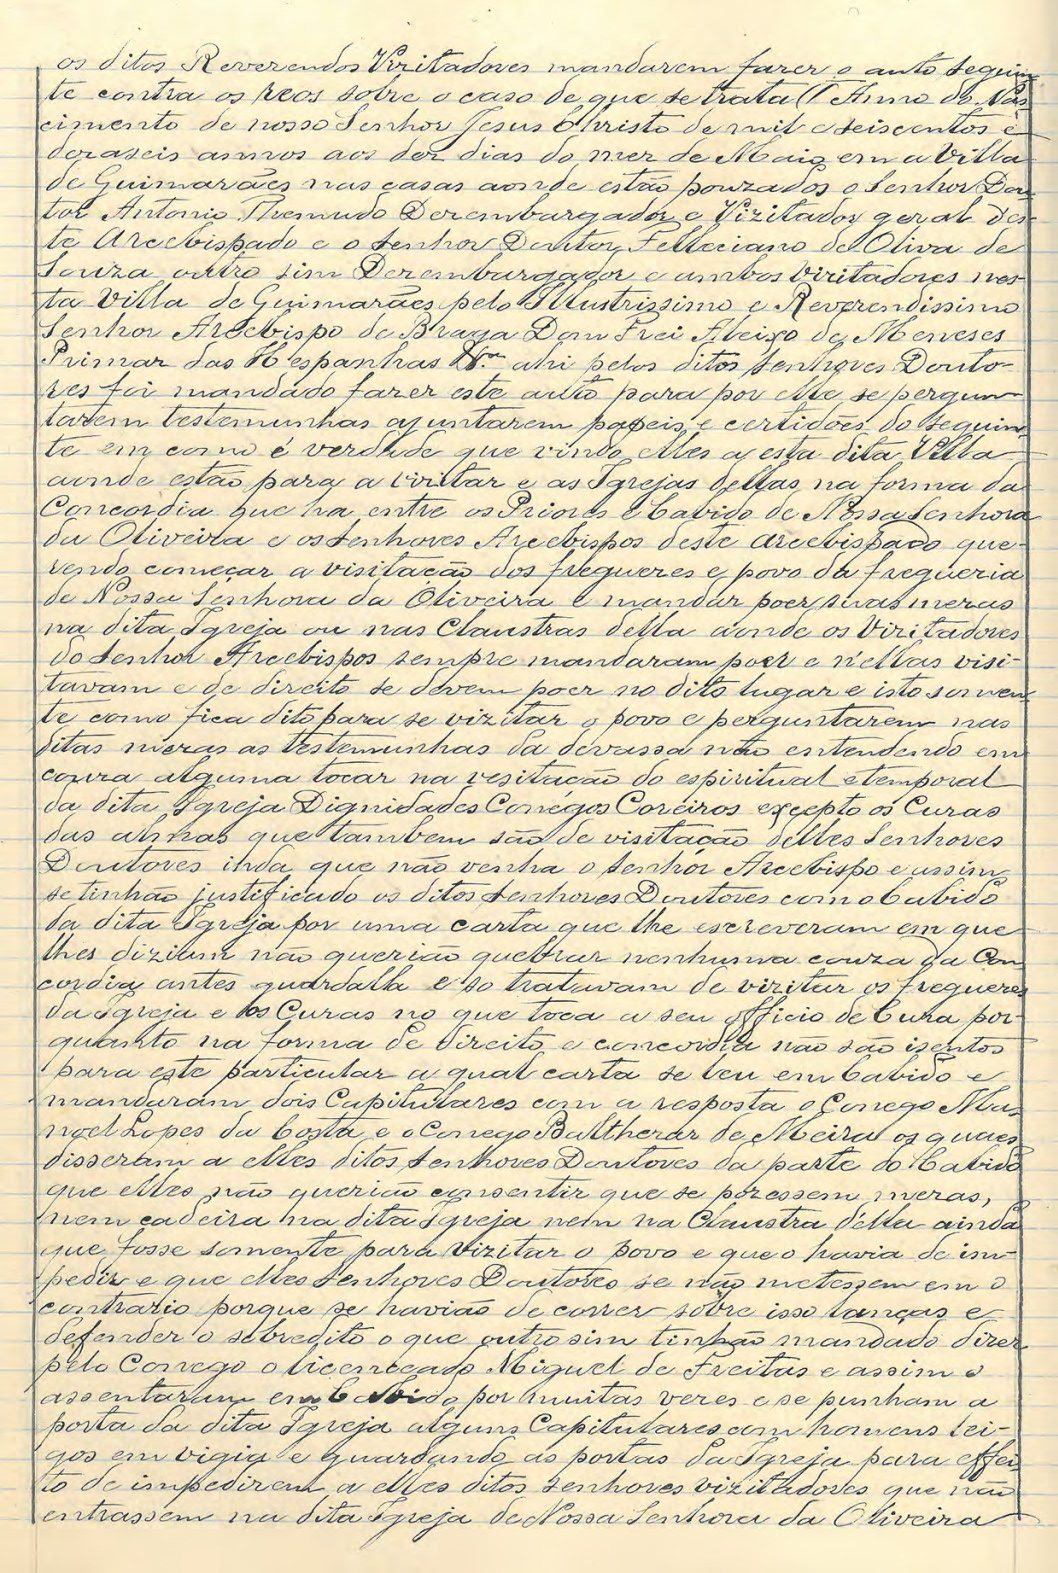 os ditos Reverendos Vizitadores mandarem fazer o auto seguin
te contra os reos sobre o caso de que se trata (( Anno do Nas
cimento de nosso Senhor Jesus Christo de mil e seiscentos e
dezaseis annos aos dez dias do mez de Maio em a Villa
de Guimarães nas casas aonde estão pouzados o Senhor Dou
tor Antonio Themudo Dezembargador e Vizitador geral des
te Arcebispado e o Senhor Doutor Felleciano de Oliva de
Souza outro sim Dezembargador e ambos Vizitadores nes
ta Villa de Guimarães pelo Illustrissimo e Reverendissimo
Senhor Arcebispo de Braga Dom Frei Aleixo de Meneses
Primaz das Hespanhas ahi pelos ditos Senhores Douto
res foi mandado fazer este auto para por elle se pergun
tarem testemunhas ajuntarem papeis e certidões do seguin
te em como é verdade que vindo elles a esta dita Villa
aonde estão para a vizitar e as Igrejas dellas na forma da
Concordia que ha entre os Priores e Cabido de Nossa Senhora
da Oliveira e os Senhores Arcebispos deste Arcebispado que-
rendo começar a visitação dos freguezes e povo da freguezia
de Nossa Senhora da Oliveira e mandar poer suas mezas
na dita Igreja ou nas Claustras della aonde os Vizitadores
do Senhor Arcebispos sempre mandaram poer e n'ellas visi-
tavam e de direito se devem poer no dito lugar e isto somen
te como fica dito para se vizitar o povo e perguntarem nas
ditas mezas as testemunhas da devassa não entendendo em
couza alguma tocar na vesitação do espiritual e temporal
da dita Igreja Dignidades Conégos Coreiros excepto os Curas
das almas que tambem são de visitação delles Senhores
Doutores inda que não venha o Senhor Arcebispo e assim
se tinhão justificado os ditos Senhores Doutores com o Cabido
da dita Igreja por uma carta que lhe escreveram em que
lhes diziam não querião quebrar nenhuma couza da Con
cordia antes guardalla e so tratavam de vizitar os freguezes
da Igreja e os Curas no que toca a seu officio de Cura por-
quanto na forma de direito e concordia não são isentos
para este particular a qual carta se leu em Cabido e
mandaram dois Capitulares com a resposta o Conego Ma
noel Lopes da Costa e o Conego Balthezar de Meira os quaes
disseram a elles ditos Senhores Doutores da parte do Cabido
que elles não querião consentir que se pozessem mezas,
nem cadeira na dita Igreja nem na Claustra della ainda
que fosse somente para vizitar o povo e que o havia de im-
pedir e que elles Senhores Doutores se não metessem em o
contrario porque se havião de correr sobre isso lanças e
defender o sobredito o que outro sim tinhão mandado dizer
pelo Conego o licenceado Miguel de Freitas e assim o
assentaram em Cabido por muitas vezes e se punham a
porta da dita Igreja alguns Capitulares com homens lei-
gos em vigia e guardando as portas da Igreja para effei
to de impedirem a elles ditos Senhores vizitadores que não
entrassem na dita Igreja de Nossa Senhora da Oliveira